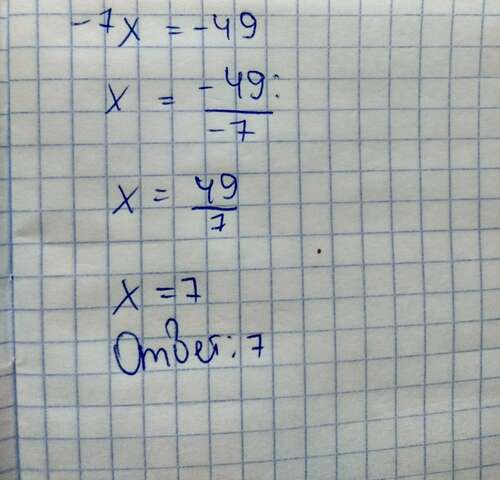 -7x = -49
x = -49: / -7
x = 49 / 7
x = 7
Ответ: 7